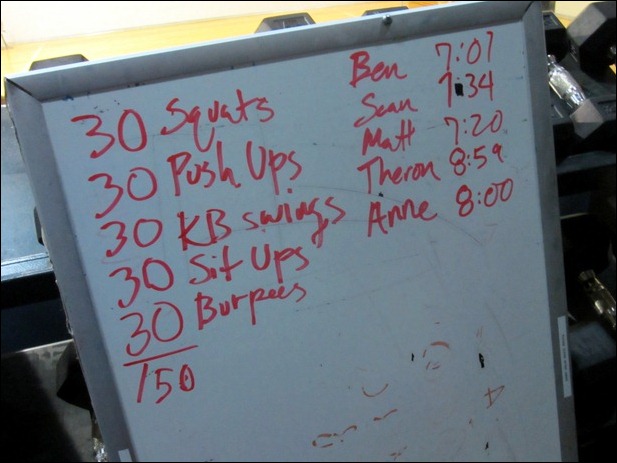 30 Squats
30 Push Ups
30 KB swings
30 Sit Ups
30 Burpees
150
Ben 7:01
Sean 7:34
Matt 7:20
Theron 8:59
Anne 8:00